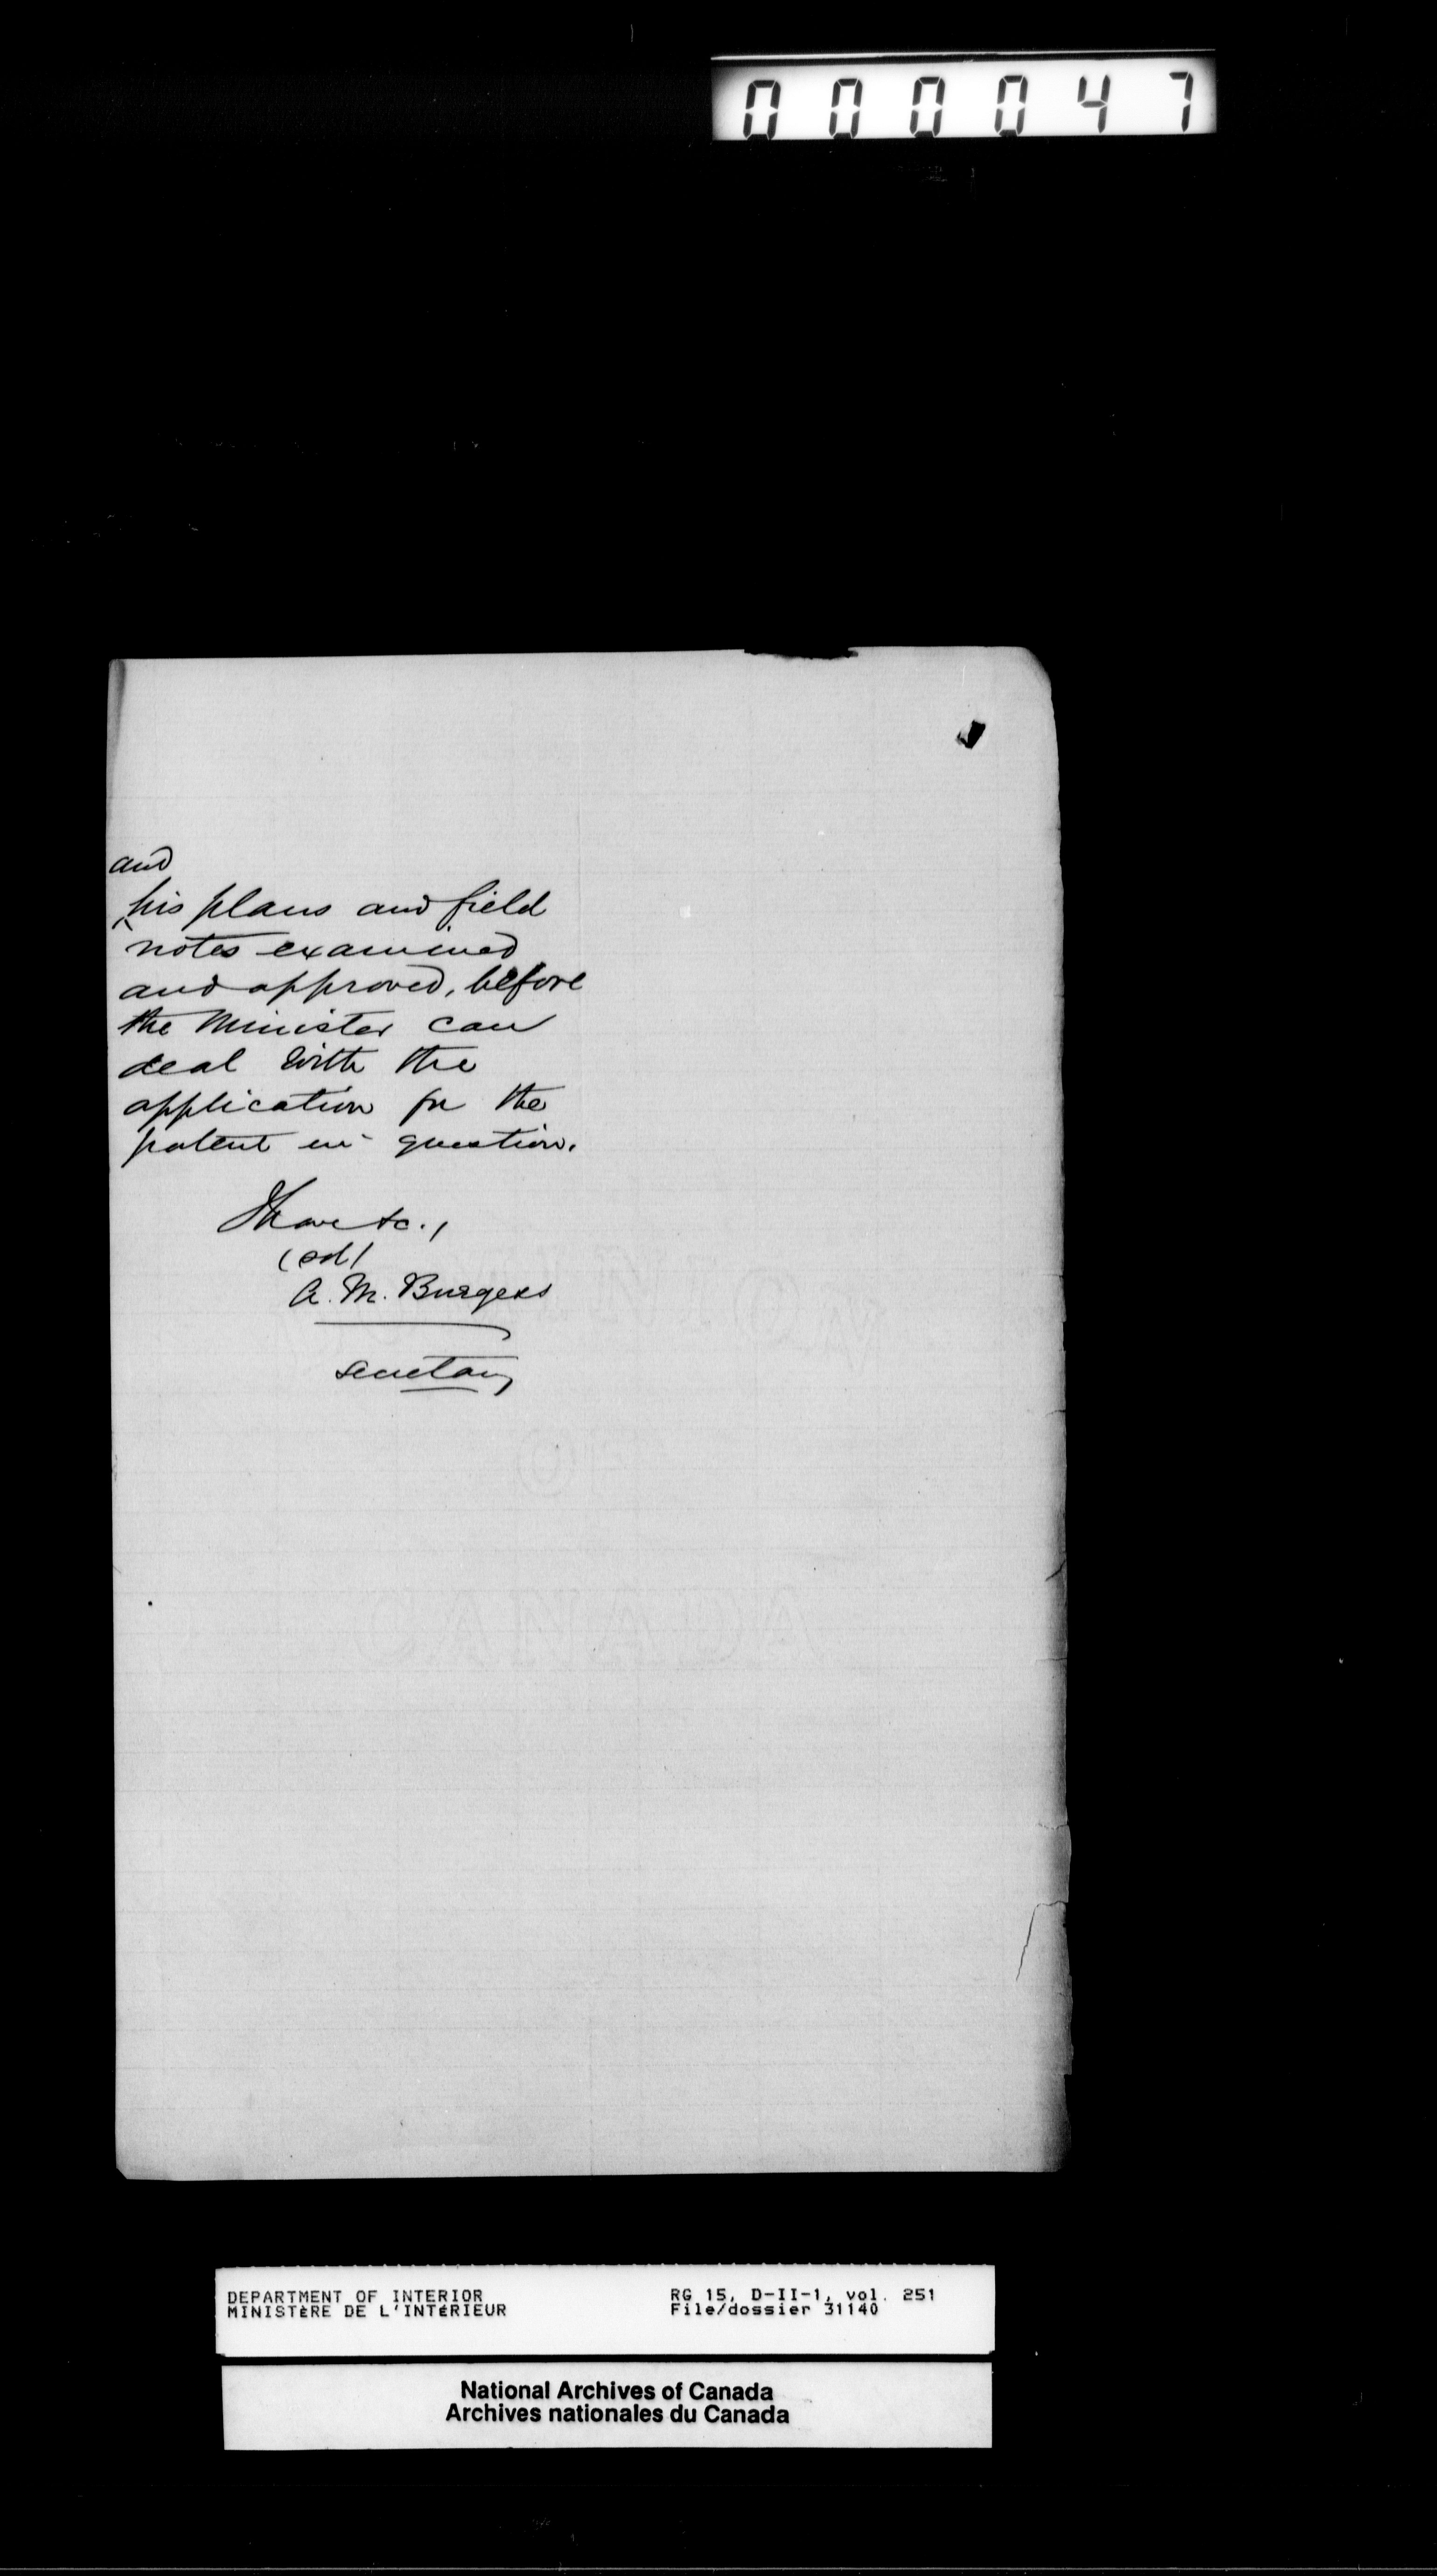 000047
and
his plans and field
notes examined
and approved, before
the Minister can
deal with the
application for the
patent in question.
I have &c.,
(sd)
A. M. Burgess
Secretary
DEPARTMENT OF INTERIOR
MINISTÈRE DE L'INTÉRIEUR
RG 15, D-II-1, vol. 251
File/dossier 31140
National Archives of Canada
Archives nationales du Canada